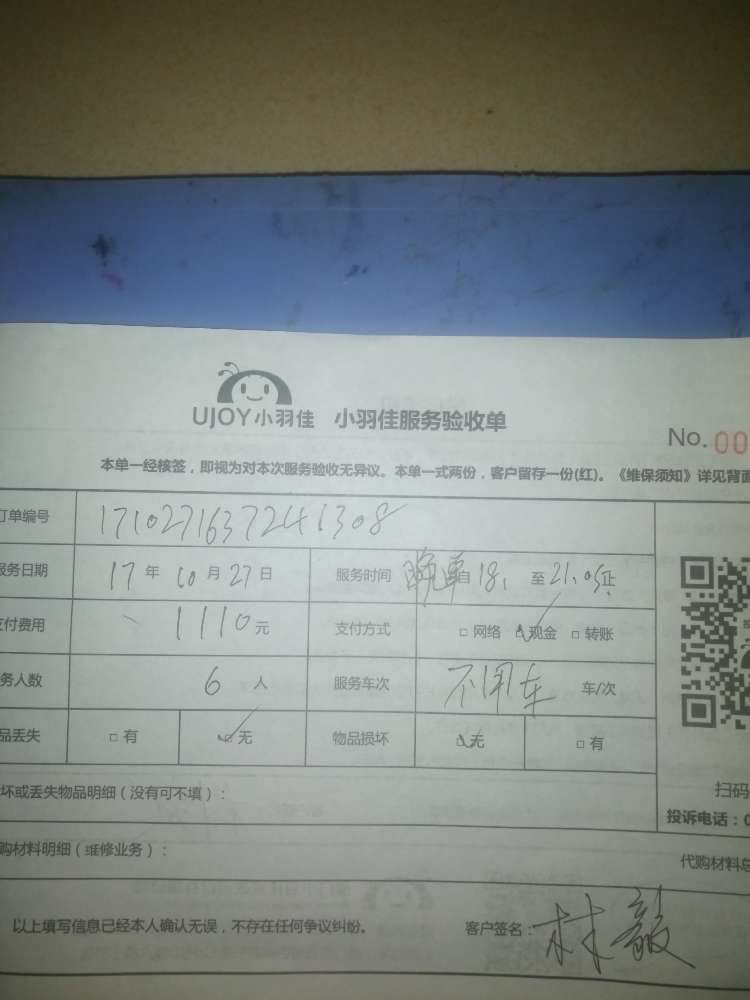 UJOY小羽佳 小羽佳服务验收单
No. 00
本单一经核签，即视为对本次服务验收无异议。本单一式两份，客户留存一份(红)。《维保须知》详见背面
订单编号 1710271637241308
服务日期 17年10月27日 服务时间 自18: 至21:05止
支付费用 1110元 支付方式 □网络 ☑现金 □转账
务人数 6人 服务车次 不用车 车/次
品丢失 □有 ☑无 物品损坏 ☑无 □有
坏或丢失物品明细（没有可不填）：
扫码
投诉电话：0
购材料明细（维修业务）：
代购材料总
以上填写信息已经本人确认无误，不存在任何争议纠纷。 客户签名：林毅